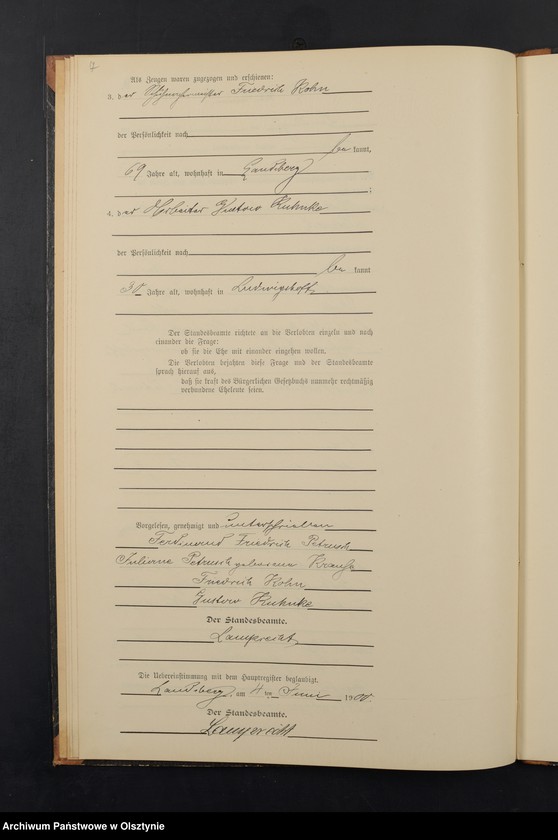 7
Als Zeugen waren zugezogen und erschienen:
3. der Schuhmachermeister Friedrich Kohn
der Persönlichkeit nach
be kannt,
69 Jahre alt, wohnhaft in Landsberg
;
4. der Arbeiter Gustav Kuhnke
der Persönlichkeit nach
be kannt
30 Jahre alt, wohnhaft in Ludwigshof
Der Standesbeamte richtete an die Verlobten einzeln und nach
einander die Frage:
ob sie die Ehe mit einander eingehen wollen.
Die Verlobten bejahten diese Frage und der Standesbeamte
sprach hierauf aus,
daß sie kraft des Bürgerlichen Gesetzbuchs nunmehr rechtmäßig
verbundene Eheleute seien.
Vorgelesen, genehmigt und unterschrieben
Ferdinand Friedrich Petrusch
Juliane Petrusch geborene Krause
Friedrich Kohn
Gustav Kuhnke
Der Standesbeamte.
Lamprecht
Die Uebereinstimmung mit dem Hauptregister beglaubigt.
Landsberg, am 4 ten Juni 1900.
Der Standesbeamte.
Lamprecht
Archiwum Państwowe w Olsztynie